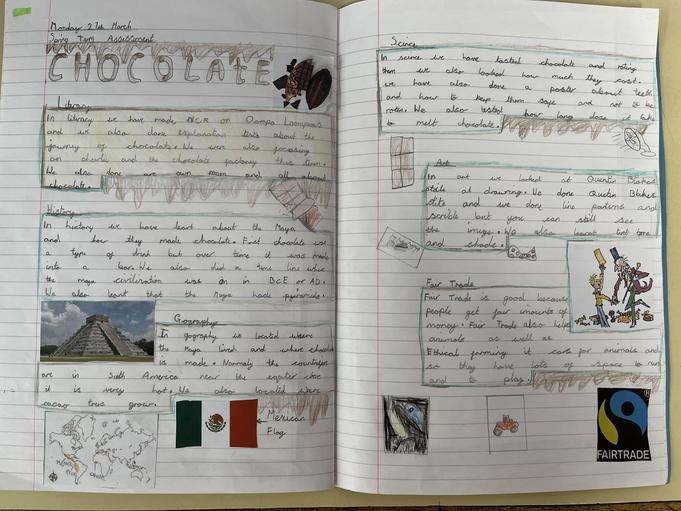 Monday 27th March
Spring Term Assessment
CHOCOLATE
Literacy
In literacy we have made on Oompa Loompa's
and we also done explanation texts about the
journey of chocolate. We were also focusing
on charlie and the chocolate factory this term.
We also done are own room and all about
chocolate.
History
In history we have leart about the Maya
and how they made chocolate. First chocolate was
a type of drink but over time it was made
into a bar. We also did a time line where
the maya civilization was on in BCE or AD.
We also learnt that the maya made pyramids.
Gography
In gography we located where
the Maya lived and where chocolate
is made. Normaly the countryes
are in South America near the equater becase
it is very hot. We also located where
cacao trees grow.
Mexican
Flag
Science
In science we have tasted chocolate and rating
them we also looked how much they cost.
We have also done a poster about teeth
and how to keep them safe and not to be
roten. We also tested how long does it take
to melt chocolate.
Art
In art we looked at Quentin Blakes
stile at drawing. We done Quentin Blakes
stile and we done line patterns and
scribble but you can still see
the image. We also learnt tint tone
and shade.
Fair Trade
Fair Trade is good because
people get fair amounts of
money. Fair Trade also helps
animals as well as
Ethical farming it cares for animals and
so they have lots of space to run
and to play.
FAIRTRADE